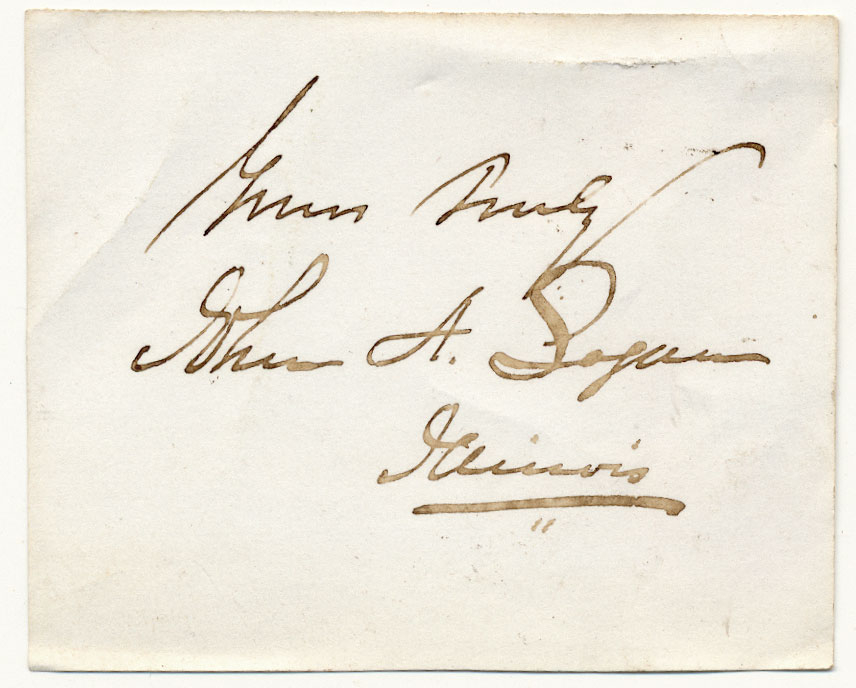 Yours Truly
John A. Logan
Illinois
"